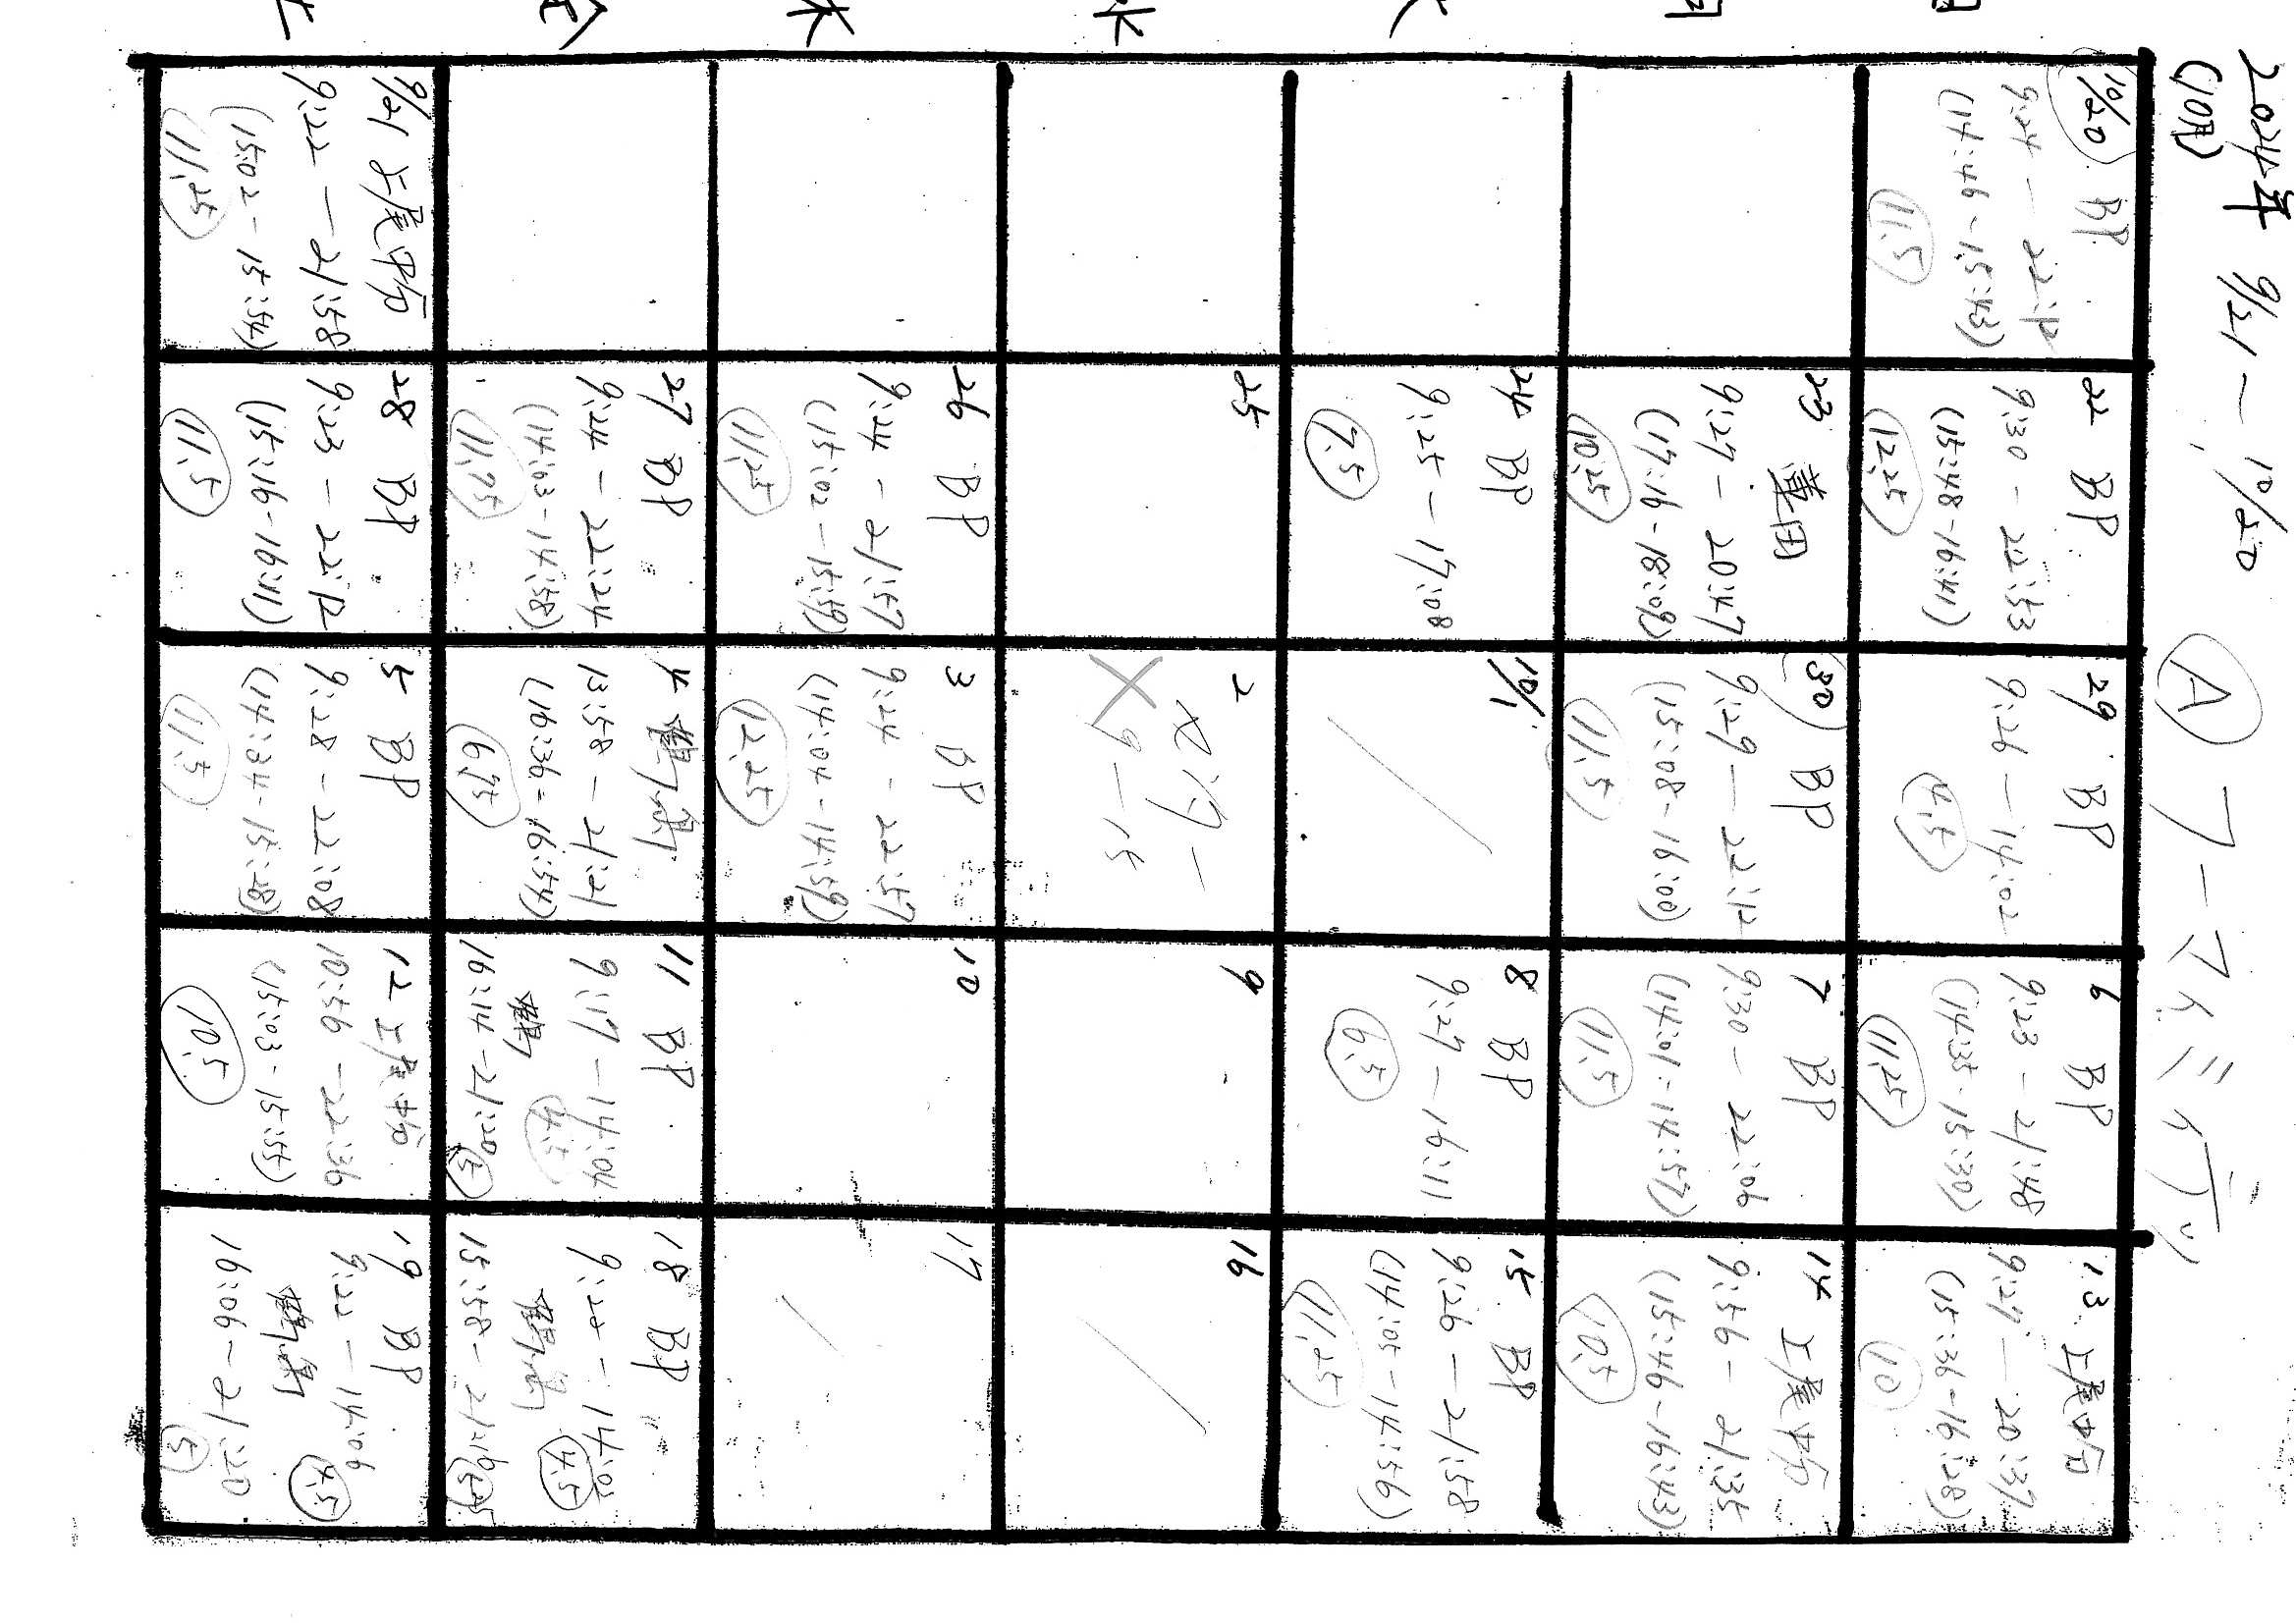 2024年 9/21 〜 10/20
(10月)
日 月 火 水 木 金 土
10/20 BP
9:24 - 22:12
(14:46 - 15:43)
11.5
9/21 上尾中町
9:22 - 21:58
(15:02 - 15:54)
11.25
22 BP
9:30 - 22:53
(15:48 - 16:41)
12.25
23 蓮田
9:27 - 20:47
(17:16 - 18:09)
10.25
24 BP
9:25 - 17:08
7.5
25
26 BP
9:24 - 21:57
(15:02 - 15:59)
11.25
27 BP
9:24 - 22:24
(14:03 - 14:58)
11.75
28 BP
9:23 - 22:12
(15:16 - 16:11)
11.5
29 BP
9:26 - 14:02
4.5
30 BP
9:29 - 22:12
(15:08 - 16:00)
11.5
10/1
2
9 - 15
3 BP
9:24 - 22:57
(14:04 - 14:59)
12.25
4
13:58 - 21:21
(16:36 - 16:54)
6.75
5 BP
9:28 - 22:08
(14:34 - 15:28)
11.5
6 BP
9:23 - 21:48
(14:35 - 15:30)
11.25
7 BP
9:30 - 22:06
(14:01 - 14:57)
11.5
8 BP
9:27 - 16:11
6.5
9
10
11 BP
9:17 - 14:04
4.5
16:14 - 21:20
5
12 上尾中町
10:56 - 22:36
(15:03 - 15:55)
10.5
13 上尾中町
9:27 - 20:37
(15:36 - 16:28)
10
14 上尾中町
9:56 - 21:35
(15:46 - 16:43)
10.5
15 BP
9:26 - 21:58
(14:05 - 14:56)
11.25
16
17
18 BP
9:22 - 14:05
4.5
15:58 - 21:19
5.25
19 BP
9:22 - 14:06
4.5
16:06 - 21:20
5